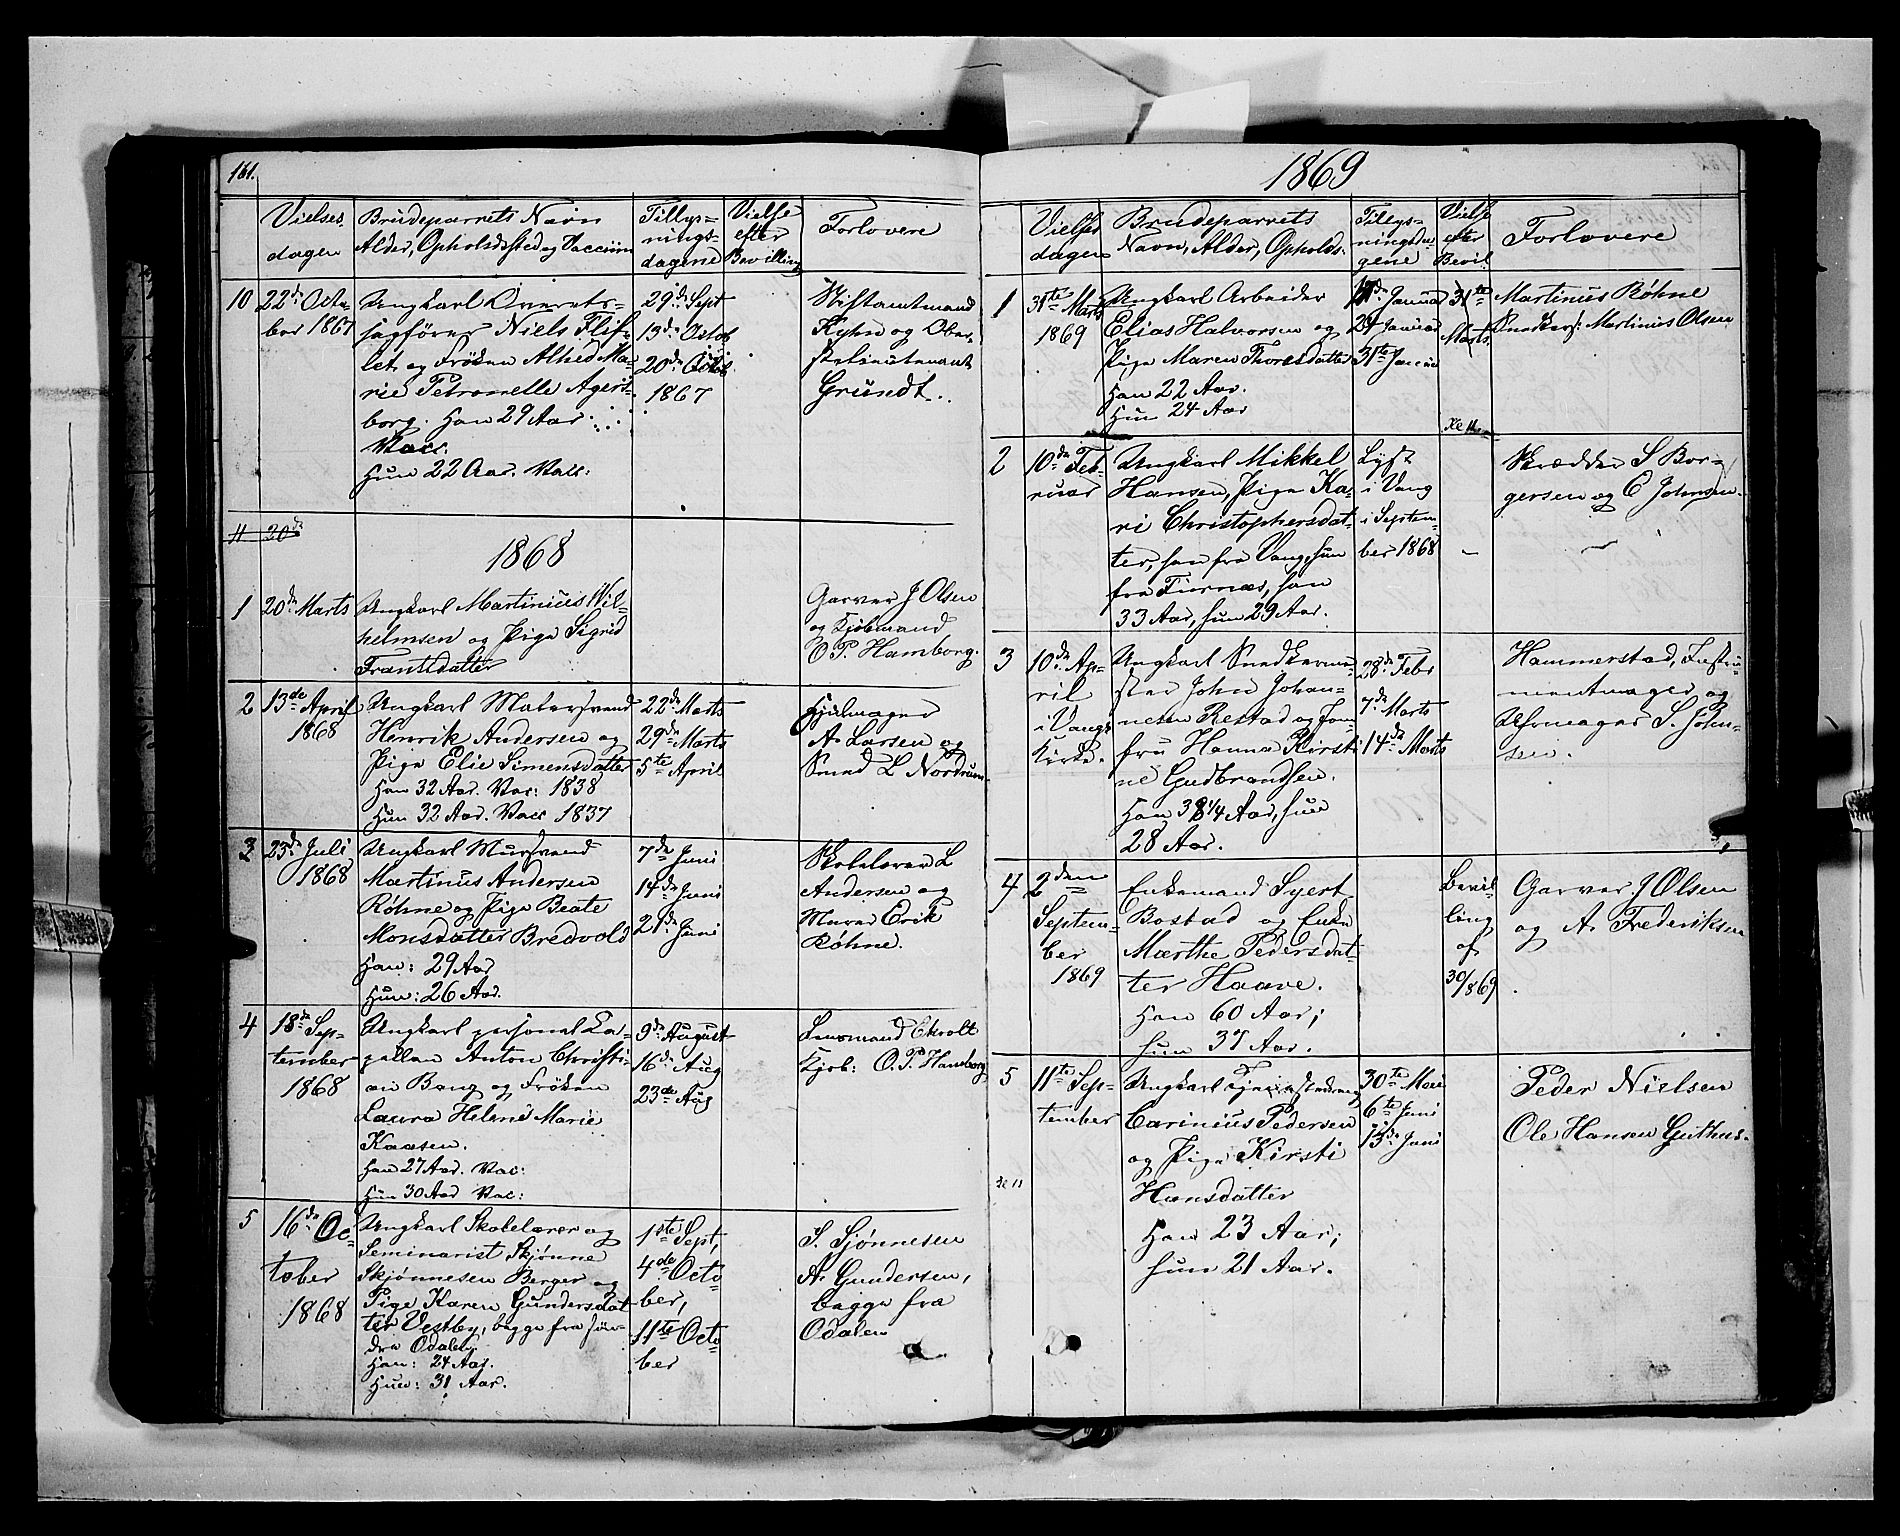 161.
Vielses
dagen
Brudeparrets Navn
Alder, Opholdssted og Vaccin
Tillys=
nings-
dagene
Vielse
efter
Bevilling
Forlovere
10
22de Octo
ber 1867
Ungkarl
sagfører Niels Flif
let og Frøken Alhed Ma-
rie Petronelle Agerst-
borg. Han 29 Aar.
Vacc.
Hun 22 Aar. Vacc:
29de Sept
13de Octob
20de Octob
1867
Stiftamtmand
Kyhn og Ober-
stelieutenant
Grundt.
11 20de
1868
1
20de Marts
Ungkarl Martinius Wil-
helmsen og Pige Sigrid
Frantsdatter
Garver J Olsen
og Kjøbmand
O. P. Hamborg.
2
13de April
1868
Ungkarl Malersvend
Henrik Andersen og
Pige Elie Simensdatter
Han 32 Aar. Vac: 1838
Hun 32 Aar. Vacc 1837
22de Marts
29de Marts
5te April
Hjulmager
A. Larsen og
Smed L Nordrum.
3
23de Juli
1868
Ungkarl Mursvend
Martinus Andersen
Røhne og Pige Beate
Monsdatter Bredvold
Han: 29 Aar
Hun: 26 Aar.
7de Juni
14de Juni
21de Juni
Skolelærer L
Andersen og
Murer Erik
Røhne.
4
18de Sep-
tember
1868
Ungkarl personel Ca-
pellan Anton Christi-
an Bang og Frøken
Laura Helene Marie
Kaasen.
Han 27 Aar. Vac:
Hun 30 Aar Vac:
9de August
16de Aug
23de Aug
Lensmand
Kjøb: O. P. Hamborg
5
16de Oc-
tober
1868
Ungkarl Skolelærer og
Seminarist Skjønne
Skjønnesen Berger og
Pige Karen Gundersdat
ter Vestby, begge fra søn-
dre Odalen.
Han: 24 Aar.
Hun: 31 Aar.
1ste Sept,
4de Octo
ber,
11te Octo
ber
S. Sjønnesen
A. Gundersen,
begge fra
Odalen
1869
Vielses
dagen
Brudeparrets
Navn, Alder, Opholds.
Tillys-
ningsda
gene
Vielse
efter
Bevil.
Forlovere
1
31te Marts
1869
Ungkarl Arbeider
Elias Halvorsen og
Pige Maren Thoresdatter
Han 22 Aar.
Hun 24 Aar
17de Januar
24 Januar
31te Januar
31te
Marts
Martinius Røhne
Snedkers: Martinius Olsen
2
10de Feb-
ruar
Ungkarl Mikkel
Hansen, Pige Ka-
ri Christophersdat-
ter, han fra Vang, hun
fra Furnæs, han
33 Aar, hun 29 Aar.
Lyst
i Vang
i Septem-
ber 1868
Skrædder S Bor-
gersen og C Johnsen.
3
10de Ap-
ril
i Vangs
Kirke.
Ungkarl Snedkerme-
ster John Johan-
nesen Restad og Jom
fru Hanna Kirsti
ne Gudbrandsen.
Han 38 1/4 Aar, hun
28 Aar.
28de Febr
7de Marts
14de Marts
Hammerstad, Instru
mentmager og
Uhrmager S. John-
sen.
4
2den
Septem-
ber
1869
Enkemand Syert
Bostad og Enke
Marthe Pedersdat-
ter Haave.
Han 60 Aar;
hun 37 Aar.
Bevil-
ling
af
30/869
Garver J Olsen
og A. Frederiksen
5
11te Sep-
tember
Ungkarl
Carinius Pedersen
og Pige Kirsti
Hansdatter
Han 23 Aar;
hun 21 Aar.
30te Mai
6te Juni
13de Juni
Peder Nielsen
Ole Hansen Guthus.